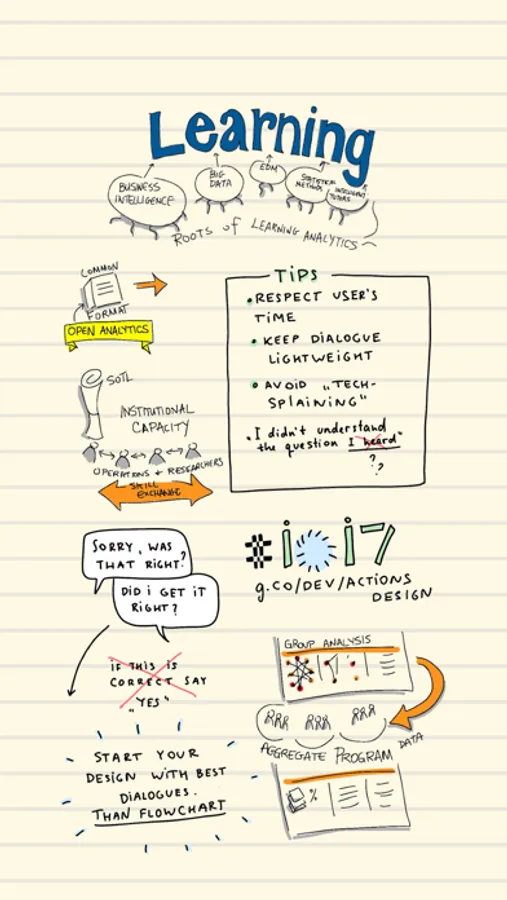 Learning
BUSINESS
INTELLIGENCE
BIG
DATA
EDM
STATISTICAL
METHODS
INTELLIGENT
TUTORS
ROOTS of LEARNING ANALYTICS
COMMON
FORMAT
OPEN ANALYTICS
SOTL
INSTITUTIONAL
CAPACITY
OPERATIONS + RESEARCHERS
SKILL
EXCHANGE
TIPS
• RESPECT USER'S
TIME
• KEEP DIALOGUE
LIGHTWEIGHT
• AVOID „TECH-
SPLAINING"
• I didn't understand
the question I heard"
?
?
SORRY, WAS
THAT RIGHT?
DID I GET IT
RIGHT?
IF THIS IS
CORRECT SAY
"YES"
START YOUR
DESIGN WITH BEST
DIALOGUES.
THAN FLOWCHART
#io17
g.co/DEV/ACTIONS
DESIGN
GROUP ANALYSIS
AGGREGATE PROGRAM DATA
%